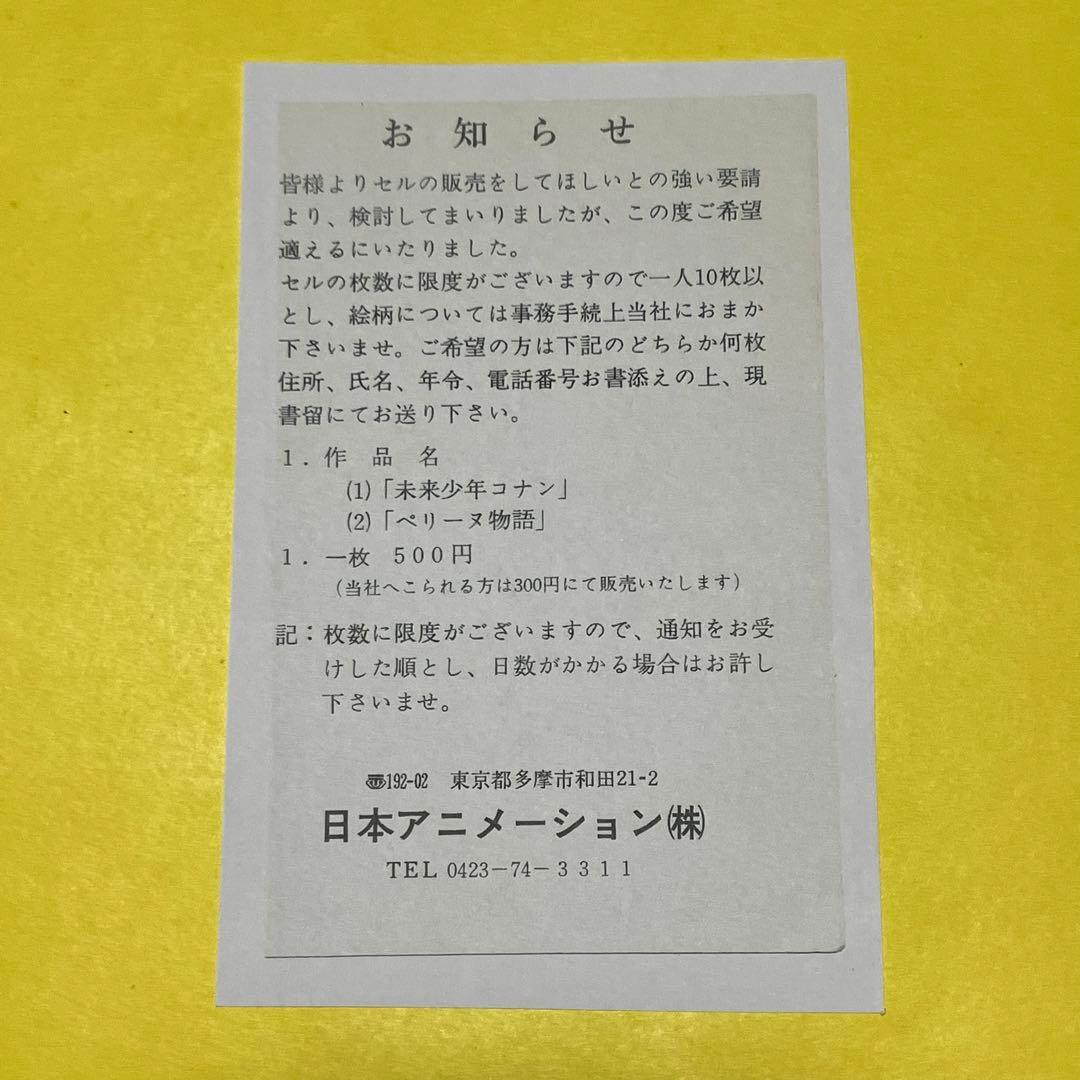 お知らせ
皆様よりセルの販売をしてほしいとの強い要請
より、検討してまいりましたが、この度ご希望
適えるにいたりました。
セルの枚数に限度がございますので一人10枚以
とし、絵柄については事務手続上当社におまか
下さいませ。ご希望の方は下記のどちらか何枚
住所、氏名、年令、電話番号お書添えの上、現
書留にてお送り下さい。
1．作品名
(1)「未来少年コナン」
(2)「ペリーヌ物語」
1．一枚 500円
（当社へこられる方は300円にて販売いたします）
記：枚数に限度がございますので、通知をお受
けした順とし、日数がかかる場合はお許し
下さいませ。
〠192-02 東京都多摩市和田21-2
日本アニメーション㈱
TEL 0423－74－3311